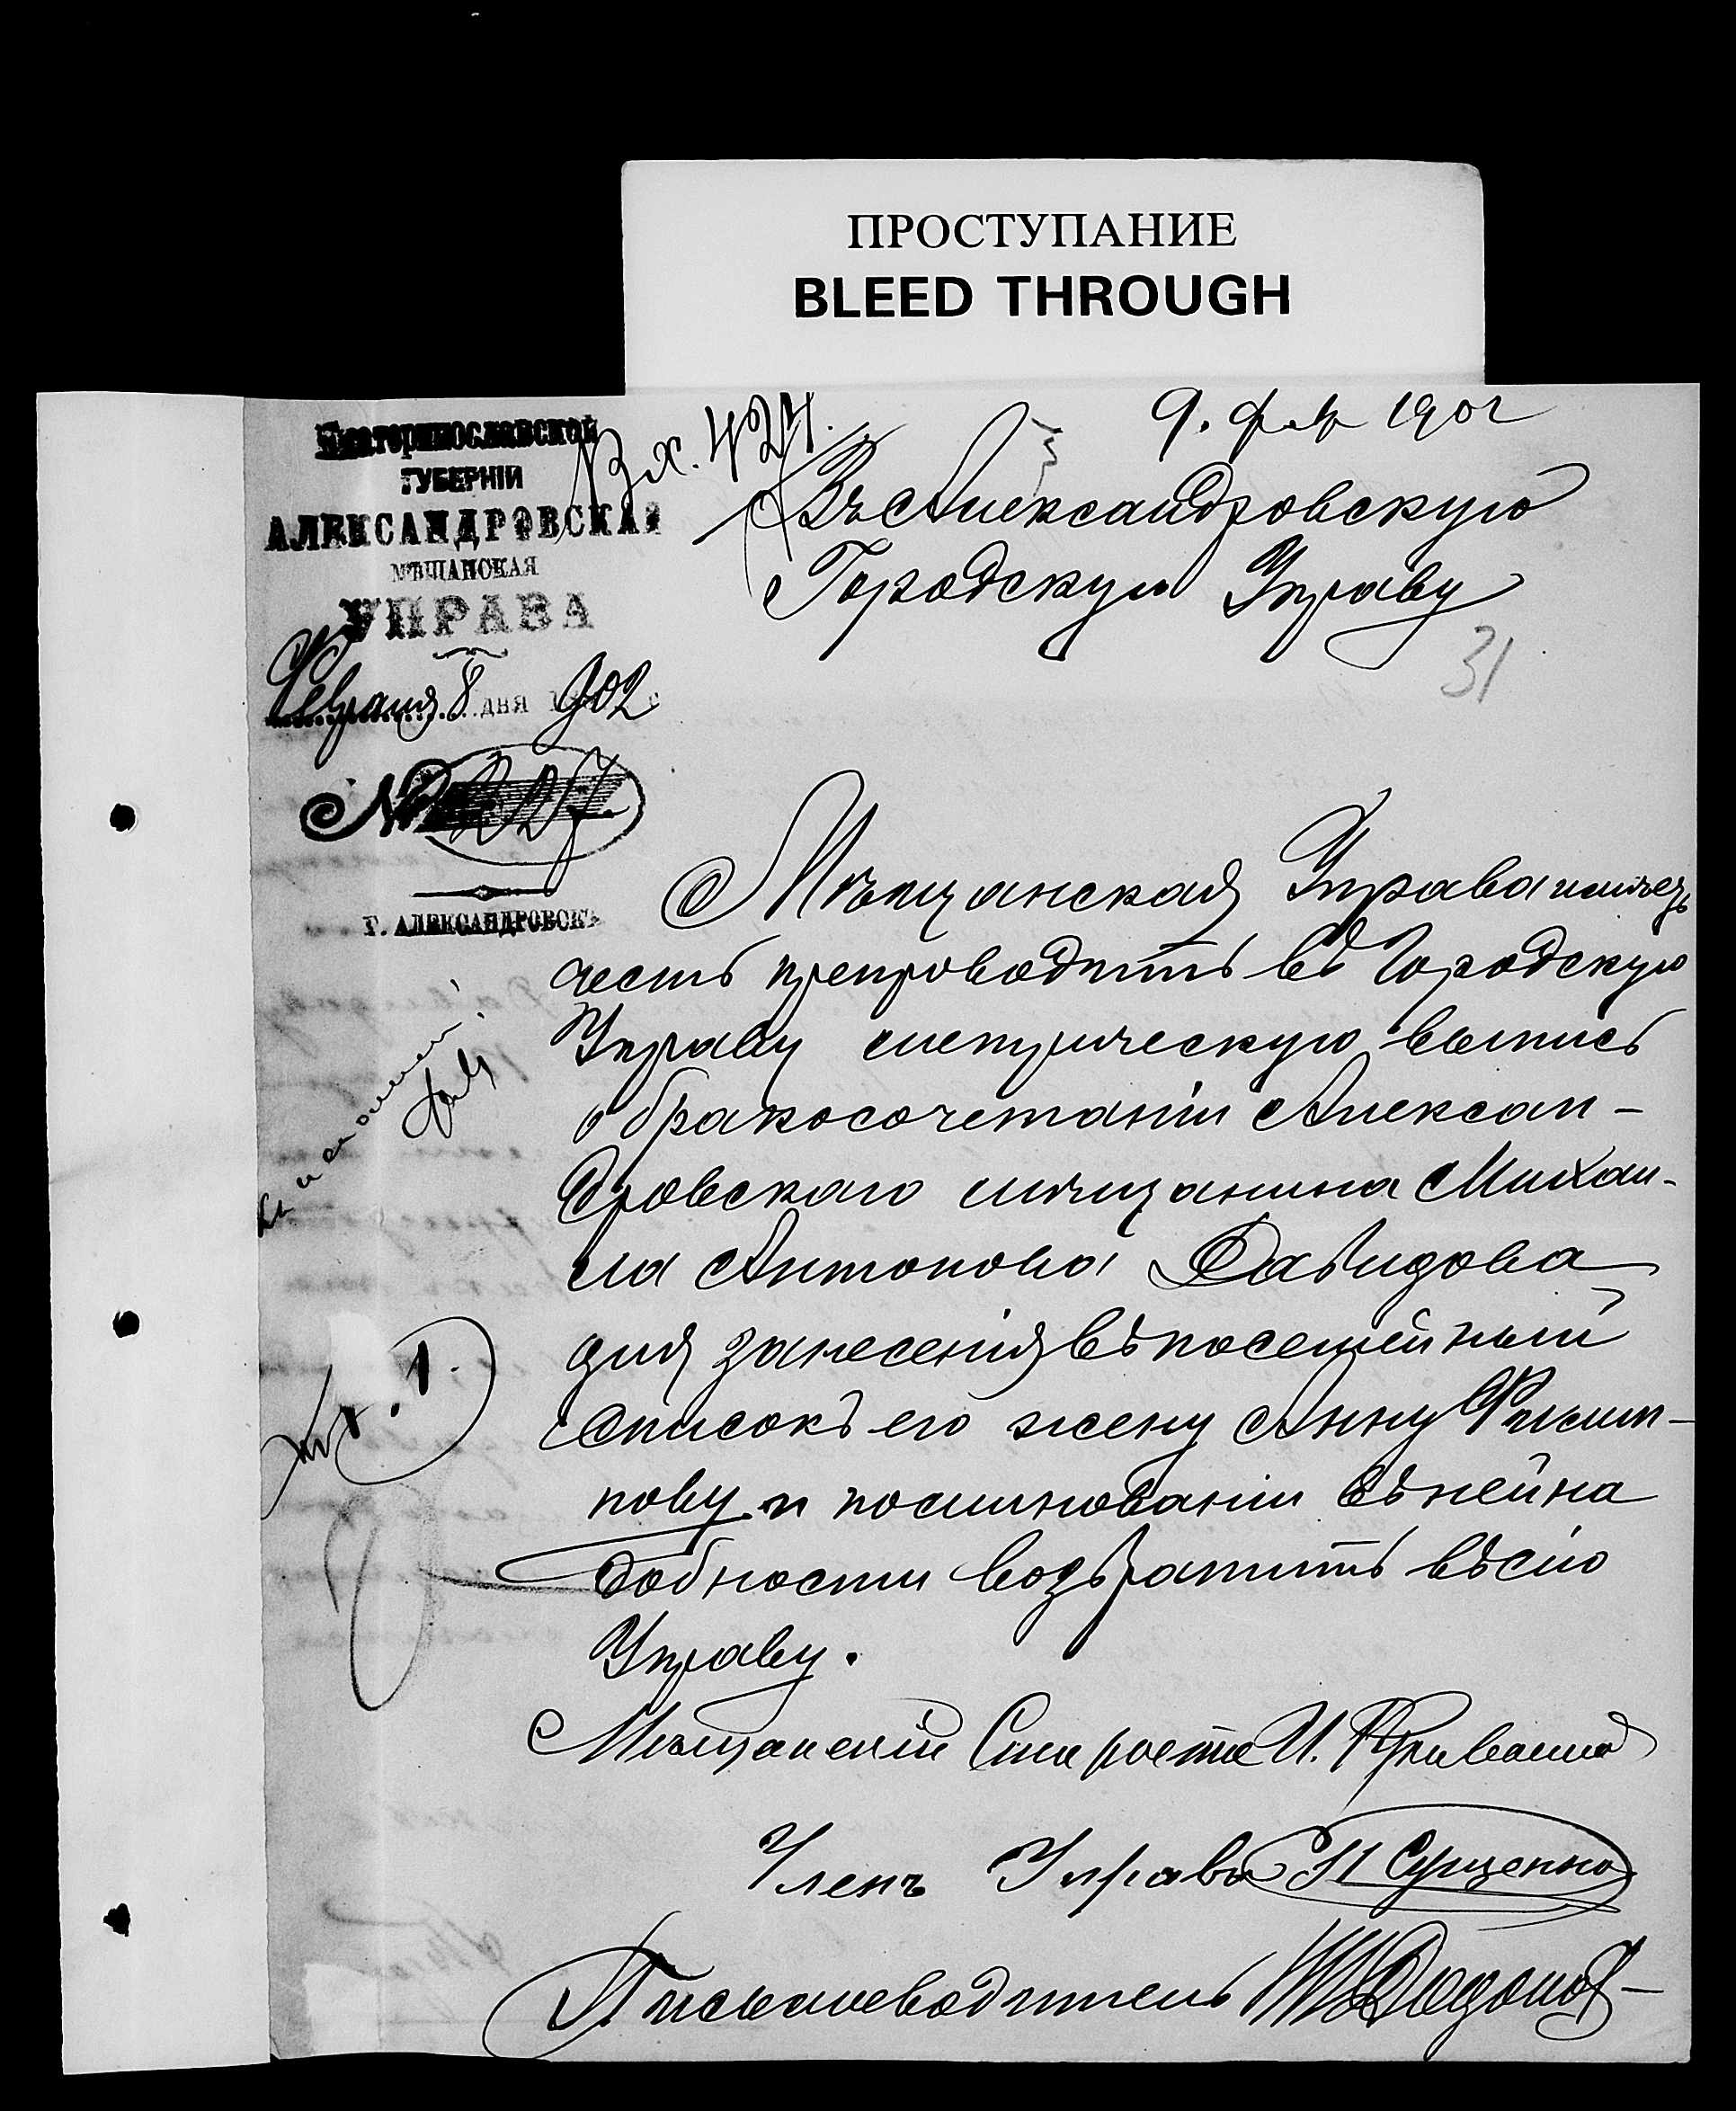 ПРОСТУПАНИЕ
BLEED THROUGH
Вх. 424.
9. фев 1902
Екатеринославской
ГУБЕРНІИ
АЛЕКСАНДРОВСКАЯ
МѢЩАНСКАЯ
УПРАВА
Февраля 8 дня 1902 г
№ 227.
Г. АЛЕКСАНДРОВСКЪ
Въ Александровскую
Городскую Управу
31
Мѣщанская Управа имѣетъ
честь препроводить въ Городскую
Управу метрическую выпись
о бракосочетаніи Алексан-
дровскаго мѣщанина Михаи-
ла Антонова Давидова
для занесенія въ посемейный
списокъ его жену Анну Филип-
пову и по минованіи въ ней на
добности возвратить въ сію
Управу.
Мѣщанскій Староста И.
Членъ Управы Н Сущенко
Письмоводитель